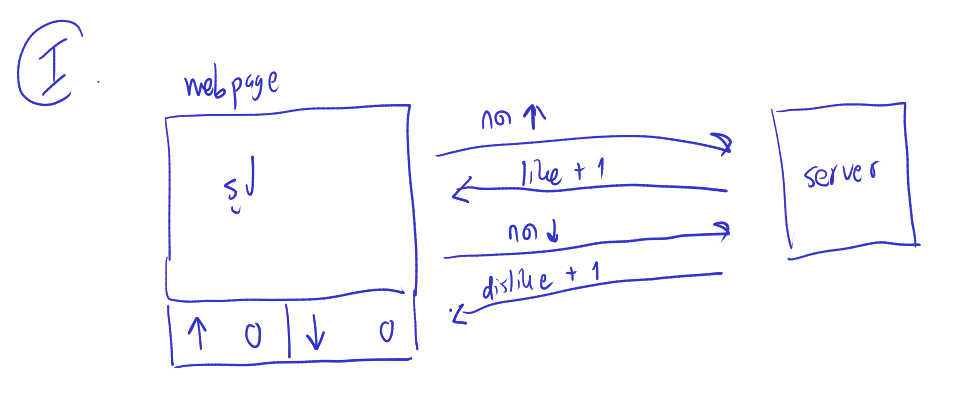 I
webpage
รูป
กด ↑
like + 1
กด ↓
dislike + 1
server
↑ 0 ↓ 0